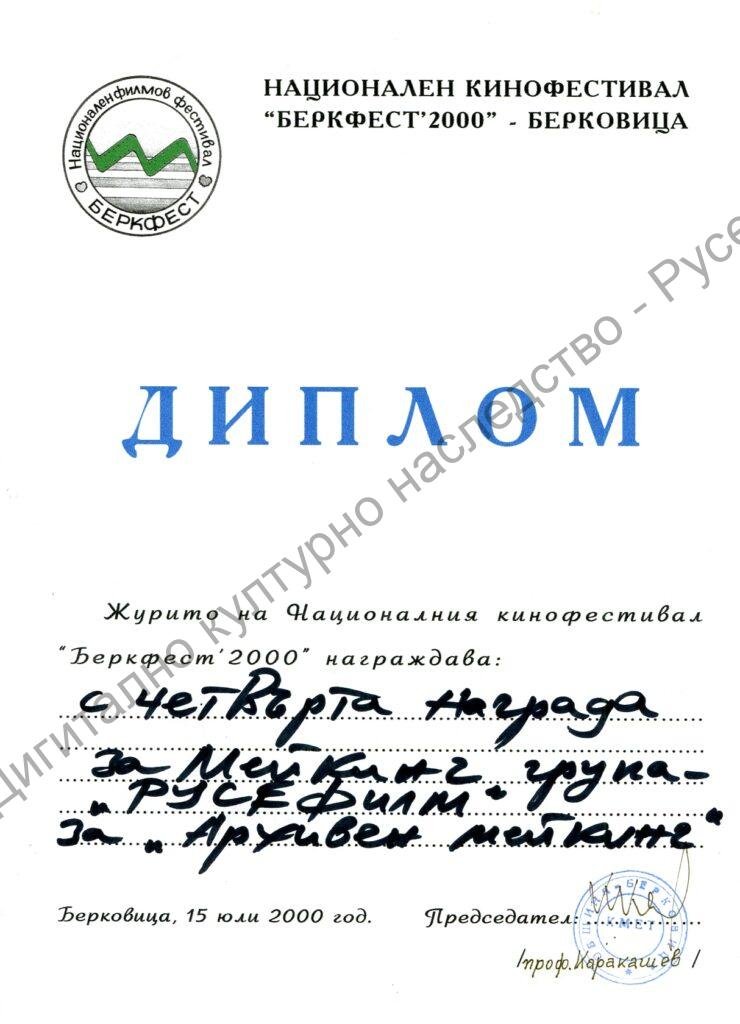 НАЦИОНАЛЕН КИНОФЕСТИВАЛ
“БЕРКФЕСТ’2000” - БЕРКОВИЦА
Национален филмов фестивал
БЕРКФЕСТ
ДИПЛОМ
Дигитално културно наследство - Русе
Журито на Националния кинофестивал
“Беркфест’2000” награждава:
с четвърта награда
за Мейкинг група –
„РУСЕФИЛМ“
за „Архивен мейкинг“
Берковица, 15 юли 2000 год. Председател:
ОБЩИНА БЕРКОВИЦА
КМЕТ
/проф. Каракашев /